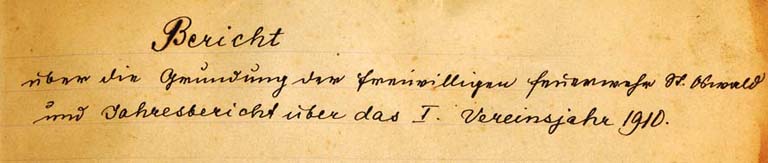 Bericht
über die Gründung der freiwilligen Feuerwehr St. Oswald
und Jahresbericht über das I. Vereinsjahr 1910.